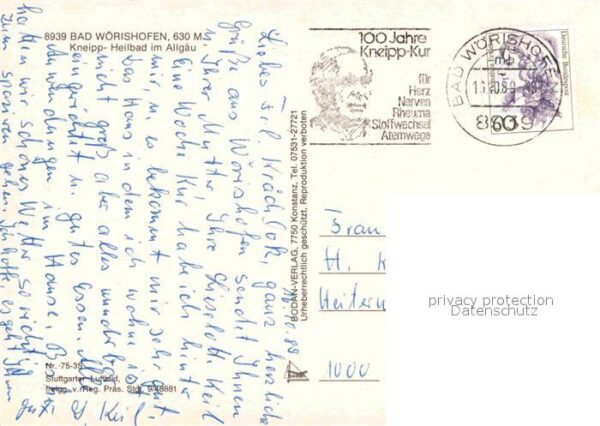 8939 BAD WÖRISHOFEN, 630 M
Kneipp- Heilbad im Allgäu
100 Jahre
Kneipp-Kur
für
Herz
Nerven
Rheuma
Stoffwechsel
Atemwege
BAD WÖRISHOFEN
mb
8939
60
Deutsche Bundespost
Liebes Frl. ganz herzliche
Grüße aus Wörishofen sendet Ihnen
u. Ihrer Mutter, Ihre Lieselott Keil
Eine Woche Kur habe ich hinter
mir, u. es bekommt mir sehr gut
Das Haus in dem ich wohne ist
nicht groß aber alles wunderbar
eingerichtet u. gutes Essen. Alle
Anwendungen im Hause. Bis
hatten wir schönes Wetter so richt
zum spazieren gehen. Ich hoffe es geht Ihnen
gut. Keil
BODAN-VERLAG, 7750 Konstanz, Tel. 07531-27721
Urheberrechtlich geschützt, Reproduktion verboten
Frau
H. K
Heitern
1000
privacy protection
Datenschutz
Nr. 75-35
Stuttgarter Luftbild,
freigg. v. Reg. Präs. Stgt. 9/48881